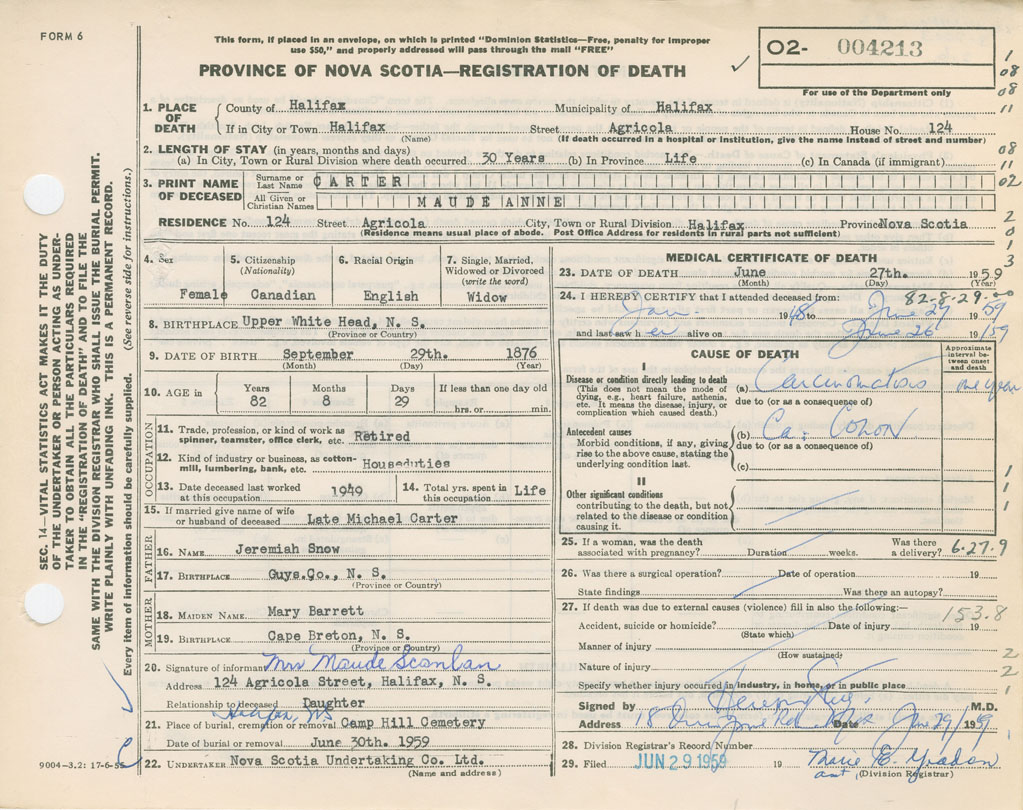 FORM 6
This form, if placed in an envelope, on which is printed "Dominion Statistics—Free, penalty for improper
use $50," and properly addressed will pass through the mail "FREE"
PROVINCE OF NOVA SCOTIA—REGISTRATION OF DEATH
O2- 004213
For use of the Department only
1. PLACE OF DEATH
County of Halifax Municipality of Halifax
If in City or Town Halifax Street Agricola House No. 124
(Name) (If death occurred in a hospital or institution, give the name instead of street and number)
2. LENGTH OF STAY (in years, months and days)
(a) In City, Town or Rural Division where death occurred 30 Years (b) In Province Life (c) In Canada (if immigrant)
3. PRINT NAME OF DECEASED
Surname or Last Name CARTER
All Given or Christian Names MAUDE ANNE
RESIDENCE No. 124 Street Agricola City, Town or Rural Division Halifax Province Nova Scotia
(Residence means usual place of abode. Post Office Address for residents in rural parts not sufficient)
4. Sex Female
5. Citizenship (Nationality) Canadian
6. Racial Origin English
7. Single, Married, Widowed or Divorced (write the word) Widow
8. BIRTHPLACE Upper White Head, N. S.
(Province or Country)
9. DATE OF BIRTH September 29th. 1876
(Month) (Day) (Year)
10. AGE in Years 82 Months 8 Days 29 If less than one day old
hrs. or min.
OCCUPATION
11. Trade, profession, or kind of work as
spinner, teamster, office clerk, etc. Retired
12. Kind of industry or business, as cotton-
mill, lumbering, bank, etc. Houseduties
13. Date deceased last worked at this occupation 1949
14. Total yrs. spent in this occupation Life
15. If married give name of wife
or husband of deceased Late Michael Carter
FATHER
16. NAME Jeremiah Snow
17. BIRTHPLACE Guys.Co., N. S.
(Province or Country)
MOTHER
18. MAIDEN NAME Mary Barrett
19. BIRTHPLACE Cape Breton, N. S.
(Province or Country)
20. Signature of informant Mrs Maude Scanlan
Address 124 Agricola Street, Halifax, N. S.
Relationship to deceased Daughter
Halifax NS
21. Place of burial, cremation or removal Camp Hill Cemetery
Date of burial or removal June 30th. 1959
22. UNDERTAKER Nova Scotia Undertaking Co. Ltd.
(Name and address)
9004-3.2: 17-6-
MEDICAL CERTIFICATE OF DEATH
23. DATE OF DEATH June 27th. 1959
(Month) (Day) (Year)
24. I HEREBY CERTIFY that I attended deceased from:
82-8-29-00
Jan. 1948 to June 27 1959
and last saw her alive on June 26 1959
CAUSE OF DEATH
Approximate interval between onset and death
I
Disease or condition directly leading to death
(This does not mean the mode of
dying, e.g., heart failure, asthenia,
etc. It means the disease, injury, or
complication which caused death.)
(a) Carcinomatosis one year
due to (or as a consequence of)
Antecedent causes
Morbid conditions, if any, giving
rise to the above cause, stating the
underlying condition last.
(b) Ca. Colon
due to (or as a consequence of)
(c)
II
Other significant conditions
contributing to the death, but not
related to the disease or condition
causing it.
25. If a woman, was the death
associated with pregnancy? Duration weeks. Was there a delivery? 6-27-9
26. Was there a surgical operation? Date of operation 19
State findings Was there an autopsy?
27. If death was due to external causes (violence) fill in also the following:—
153.8
Accident, suicide or homicide? Date of injury 19
(State which)
Manner of injury
(How sustained)
Nature of injury
Specify whether injury occurred in industry, in home, or in public place
Signed by M.D.
Address 18 Date June 29/1959
28. Division Registrar's Record Number
29. Filed JUN 29 1959 19 Marie E.
(Division Registrar)
1
08
08
11
08
11
02
2
0
1
3
1
1
1
2
2
1
SEC. 14—VITAL STATISTICS ACT MAKES IT THE DUTY
OF THE UNDERTAKER OR PERSON ACTING AS UNDER-
TAKER TO OBTAIN ALL THE PARTICULARS REQUIRED
IN THE "REGISTRATION OF DEATH" AND TO FILE THE
SAME WITH THE DIVISION REGISTRAR WHO SHALL ISSUE THE BURIAL PERMIT.
WRITE PLAINLY WITH UNFADING INK. THIS IS A PERMANENT RECORD.
Every item of information should be carefully supplied. (See reverse side for instructions.)